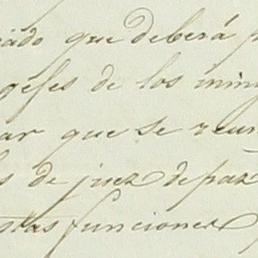 que deberá
gefes de los
ar que se reun
s de juez de paz
stas funciones